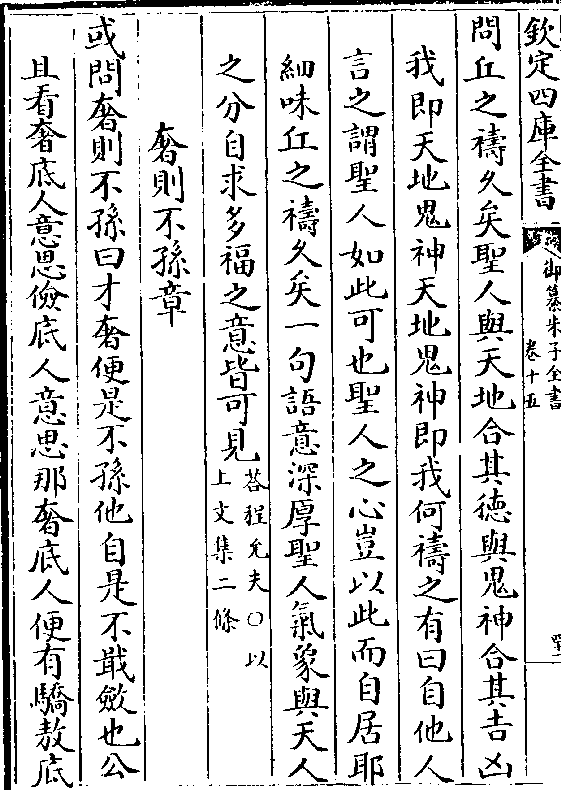 欽定四庫全書
御纂朱子全書
卷十五
問丘之禱久矣聖人與天地合其德與鬼神合其吉凶
我即天地鬼神天地鬼神即我何禱之有曰自他人
言之謂聖人如此可也聖人之心豈以此而自居耶
細味丘之禱久矣一句語意深厚聖人氣象與天人
之分自求多福之意皆可見
荅程允夫○以
上文集二條
奢則不孫章
或問奢則不孫曰才奢便是不孫他自是不戢斂也公
且看奢底人意思儉底人意思那奢底人便有驕敖底